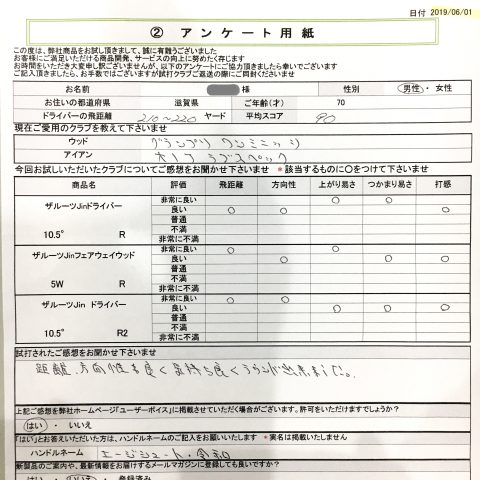 日付 2019/06/01
② アンケート用紙
この度は、弊社商品をお試し頂きまして、誠に有難うございました
お客様にご満足いただける商品開発、サービスの向上に努めたく存じます
お時間をいただき大変申し訳ございませんが、以下のアンケートにご協力頂きましたら幸いでございます
ご記入頂きましたら、お手数ではございますが試打クラブご返送の際にご同封くださいませ
お名前 様 性別 男性・女性
お住いの都道府県 滋賀県 ご年齢(才) 70
ドライバーの飛距離 210~220 ヤード 平均スコア 90
現在ご愛用のクラブを教えて下さいませ
ウッド グランプリ ワンミニッツ
アイアン オノフ ラブスペック
今回お試しいただいたクラブについてご感想をお聞かせ下さいませ *該当するものに〇をつけて下さいませ
商品名 評価 飛距離 方向性 上がり易さ つかまり易さ 打感
ザルーツJinドライバー
10.5° R
非常に良い 〇 〇
良い 〇 〇 〇
普通
不満
非常に不満
ザルーツJinフェアウェイウッド
5W R
非常に良い 〇 〇
良い 〇 〇 〇
普通
不満
非常に不満
ザルーツJin ドライバー
10.5° R2
非常に良い 〇 〇
良い 〇 〇 〇
普通
不満
非常に不満
試打されたご感想をお聞かせ下さいませ
距離、方向性も良く気持ち良くラウンド出来ました。
上記ご感想を弊社ホームページ「ユーザーボイス」に掲載させていただく場合がございます。許可をいただけますでしょうか?
はい ・ いいえ
「はい」とお答えいただいた方は、ハンドルネームのご記入をお願いいたします *実名は掲載いたしません
ハンドルネーム エージシュート・
新製品のご案内や、最新情報をお届けするメールマガジンに登録しても良いですか?
はい ・ いいえ ・ 登録済み